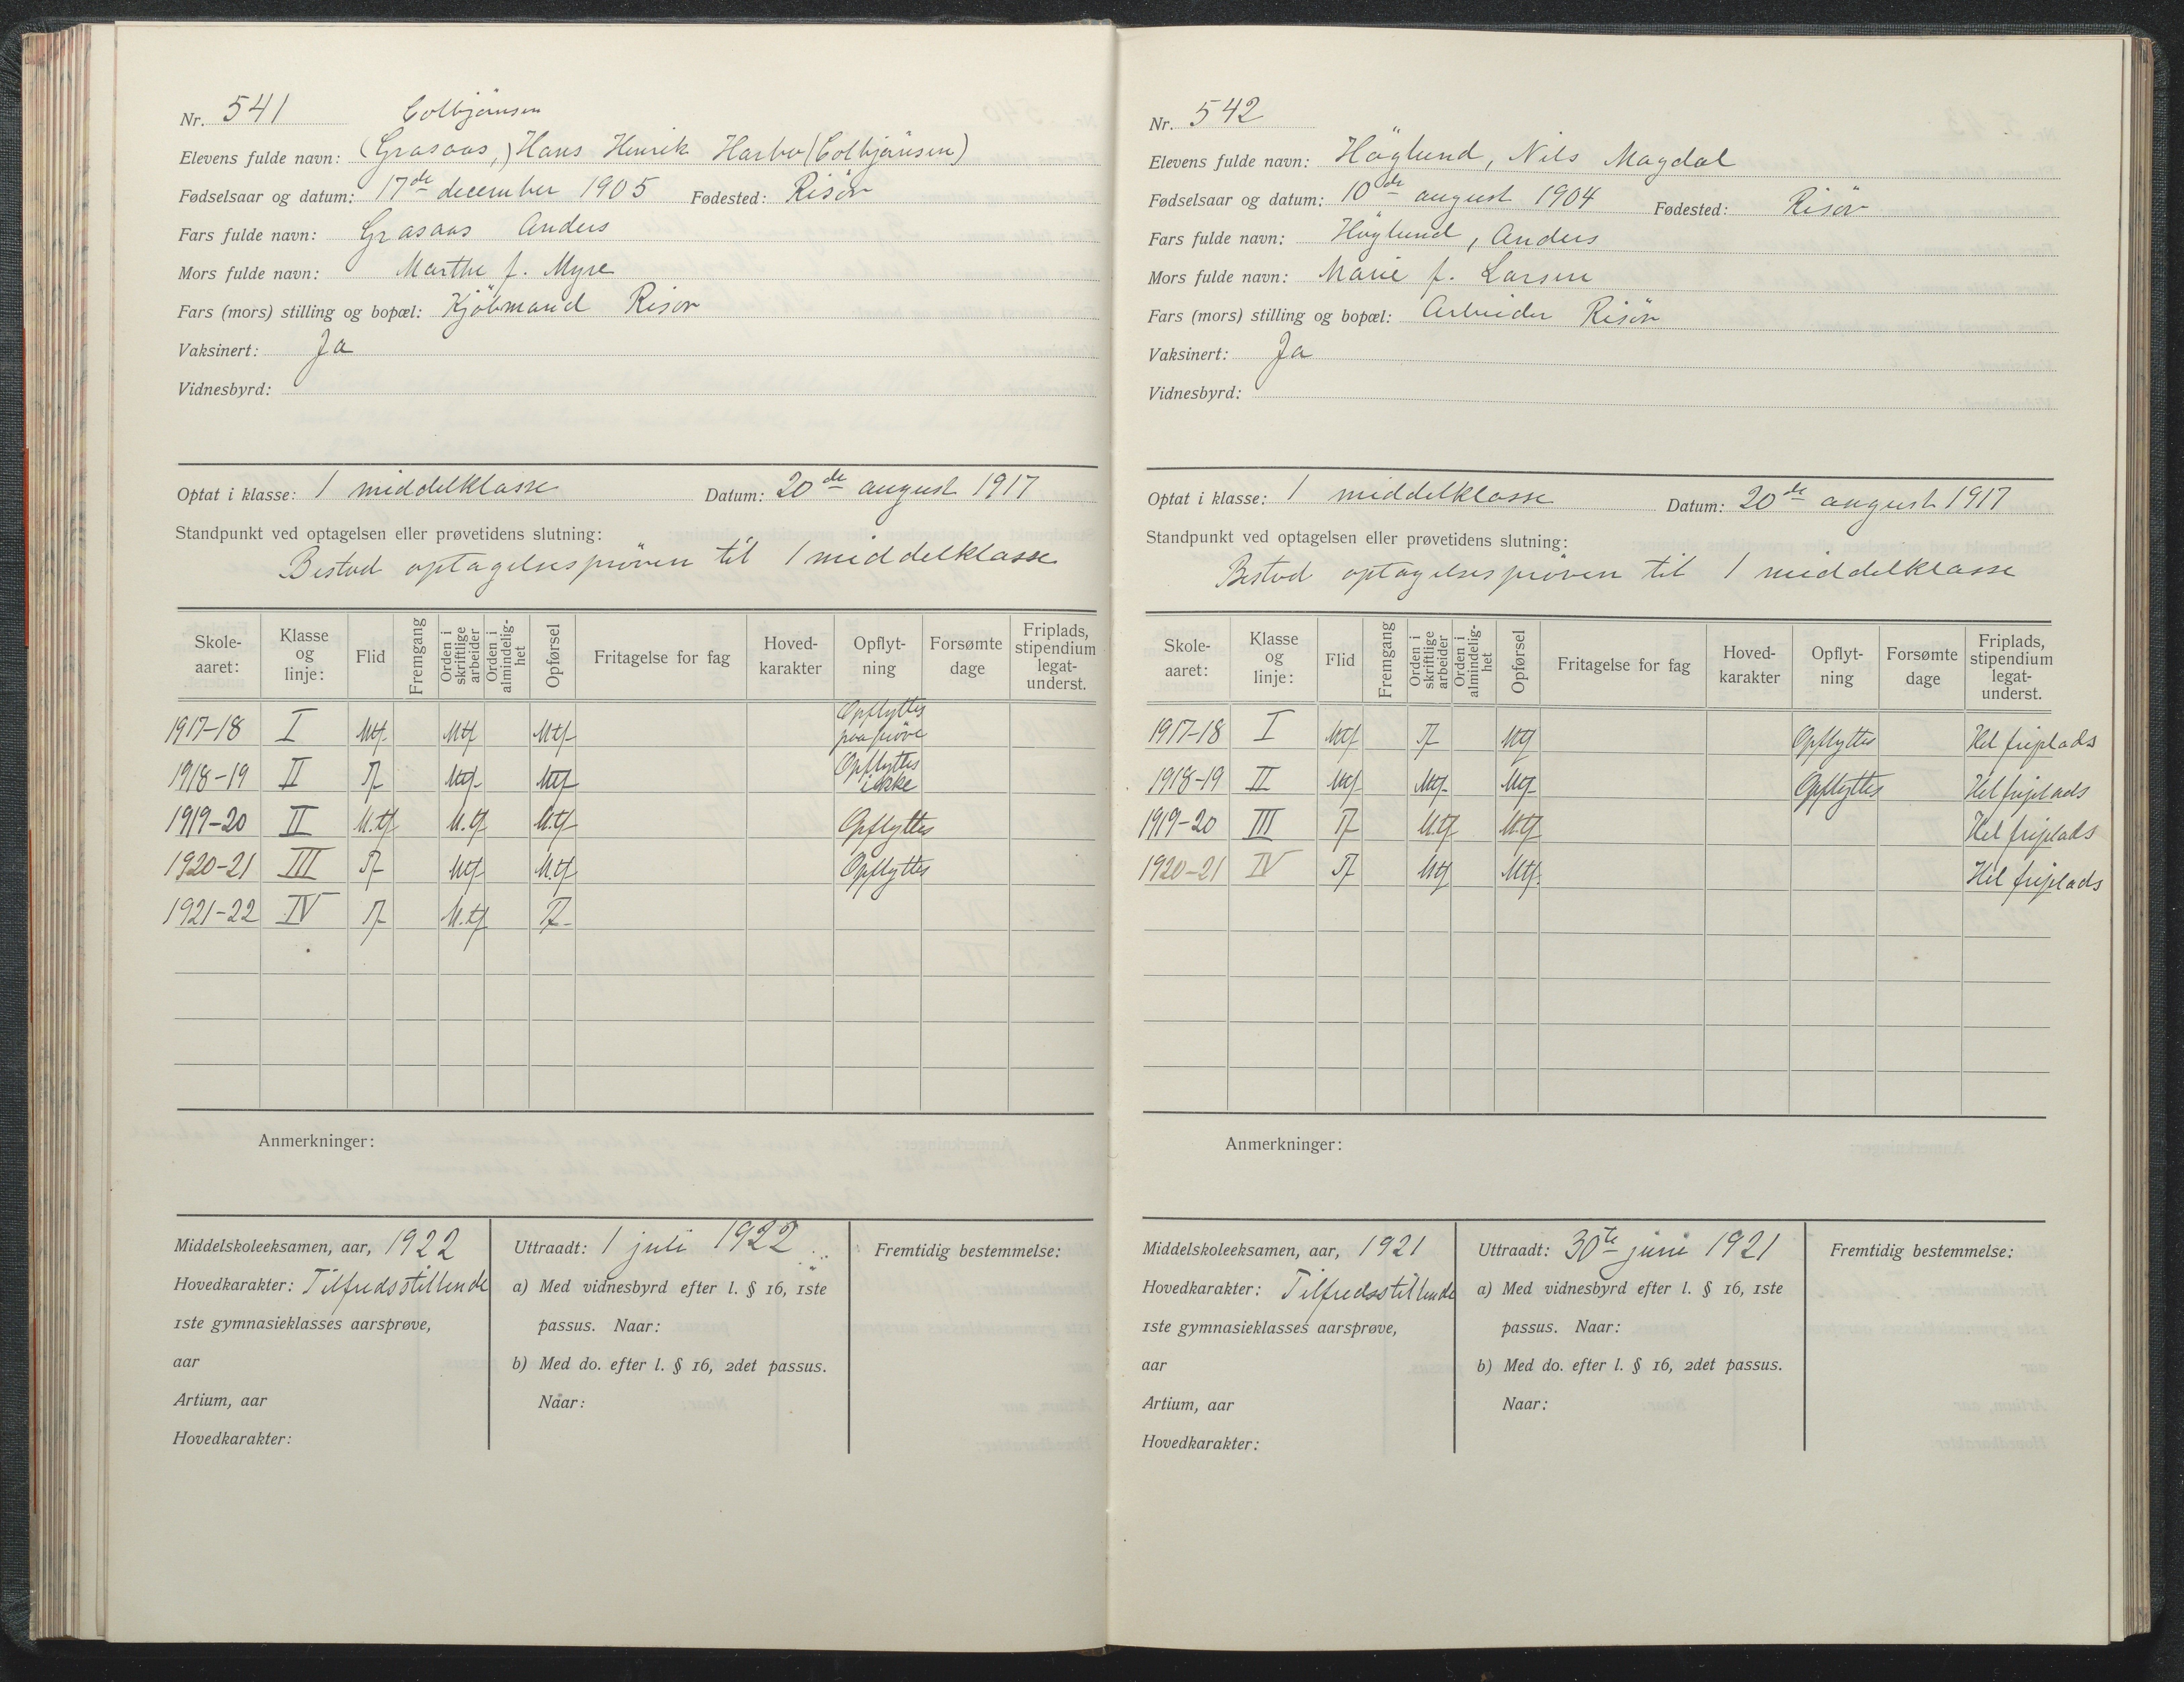 Nr. 541 Colbjørnsen
Elevens fulde navn: (Grasaas,) Hans Henrik Harbo (Colbjørnsen)
Fødselsaar og datum: 17de december 1905 Fødested: Risør
Fars fulde navn: Grasaas Anders
Mors fulde navn: Marthe f. Myre
Fars (mors) stilling og bopæl: Kjøbmand Risør
Vaksinert: Ja
Vidnesbyrd:
Optat i klasse: 1 middelklasse Datum: 20de august 1917
Standpunkt ved optagelsen eller prøvetidens slutning:
Bestod optagelsesprøven til 1 middelklasse
Skole-aaret: Klasse og linje: Flid Fremgang Orden i skriftlige arbeider Orden i almindelig-het Opførsel Fritagelse for fag Hoved-karakter Opflyt-ning Forsømte dage Friplads, stipendium legat-underst.
1917-18 I Mtf Mtf Mtf Opflyttes paa prøve
1918-19 II Tf Mtf Mtf Opflyttes ikke
1919-20 II M.tf M.tf M.tf Opflyttes
1920-21 III Tf Mtf M.tf Opflyttes
1921-22 IV Tf M.tf Tf
Anmerkninger:
Middelskoleeksamen, aar, 1922
Hovedkarakter: Tilfredsstillende
1ste gymnasieklasses aarsprøve,
aar
Artium, aar
Hovedkarakter:
Uttraadt: 1 juli 1922
a) Med vidnesbyrd efter l. § 16, 1ste
passus. Naar:
b) Med do. efter l. § 16, 2det passus.
Naar:
Fremtidig bestemmelse:
Nr. 542
Elevens fulde navn: Høglund, Nils Magdal
Fødselsaar og datum: 10de august 1904 Fødested: Risør
Fars fulde navn: Høglund, Anders
Mors fulde navn: Marie f. Larsen
Fars (mors) stilling og bopæl: Arbeider Risør
Vaksinert: Ja
Vidnesbyrd:
Optat i klasse: 1 middelklasse Datum: 20de august 1917
Standpunkt ved optagelsen eller prøvetidens slutning:
Bestod optagelsesprøven til 1 middelklasse
Skole-aaret: Klasse og linje: Flid Fremgang Orden i skriftlige arbeider Orden i almindelig-het Opførsel Fritagelse for fag Hoved-karakter Opflyt-ning Forsømte dage Friplads, stipendium legat-underst.
1917-18 I Mtf Tf Mtf Opflyttes Hel friplads
1918-19 II Mtf Mtf Mtf Opflyttes Hel friplads
1919-20 III Tf M.tf M.tf Hel friplads
1920-21 IV Tf Mtf Mtf. Hel friplads
Anmerkninger:
Middelskoleeksamen, aar, 1921
Hovedkarakter: Tilfredsstillende
1ste gymnasieklasses aarsprøve,
aar
Artium, aar
Hovedkarakter:
Uttraadt: 30te juni 1921
a) Med vidnesbyrd efter l. § 16, 1ste
passus. Naar:
b) Med do. efter l. § 16, 2det passus.
Naar:
Fremtidig bestemmelse: